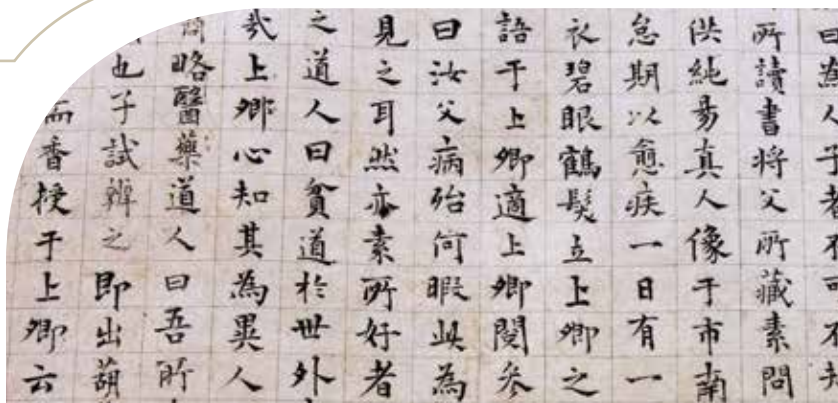 曰為人子者不可不知
所讀書將父所藏素問
供純昜真人像于市南
怠期以愈疾一日有一
衣碧眼鶴髮立上卿之
語于上卿適上卿閱參
曰汝父病殆何暇此為
見之耳然亦素所好者
之道人曰貧道於世外
哉上卿心知其為異人
商略醫藥道人曰吾所
也子試辨之即出葫
而香授于上卿云